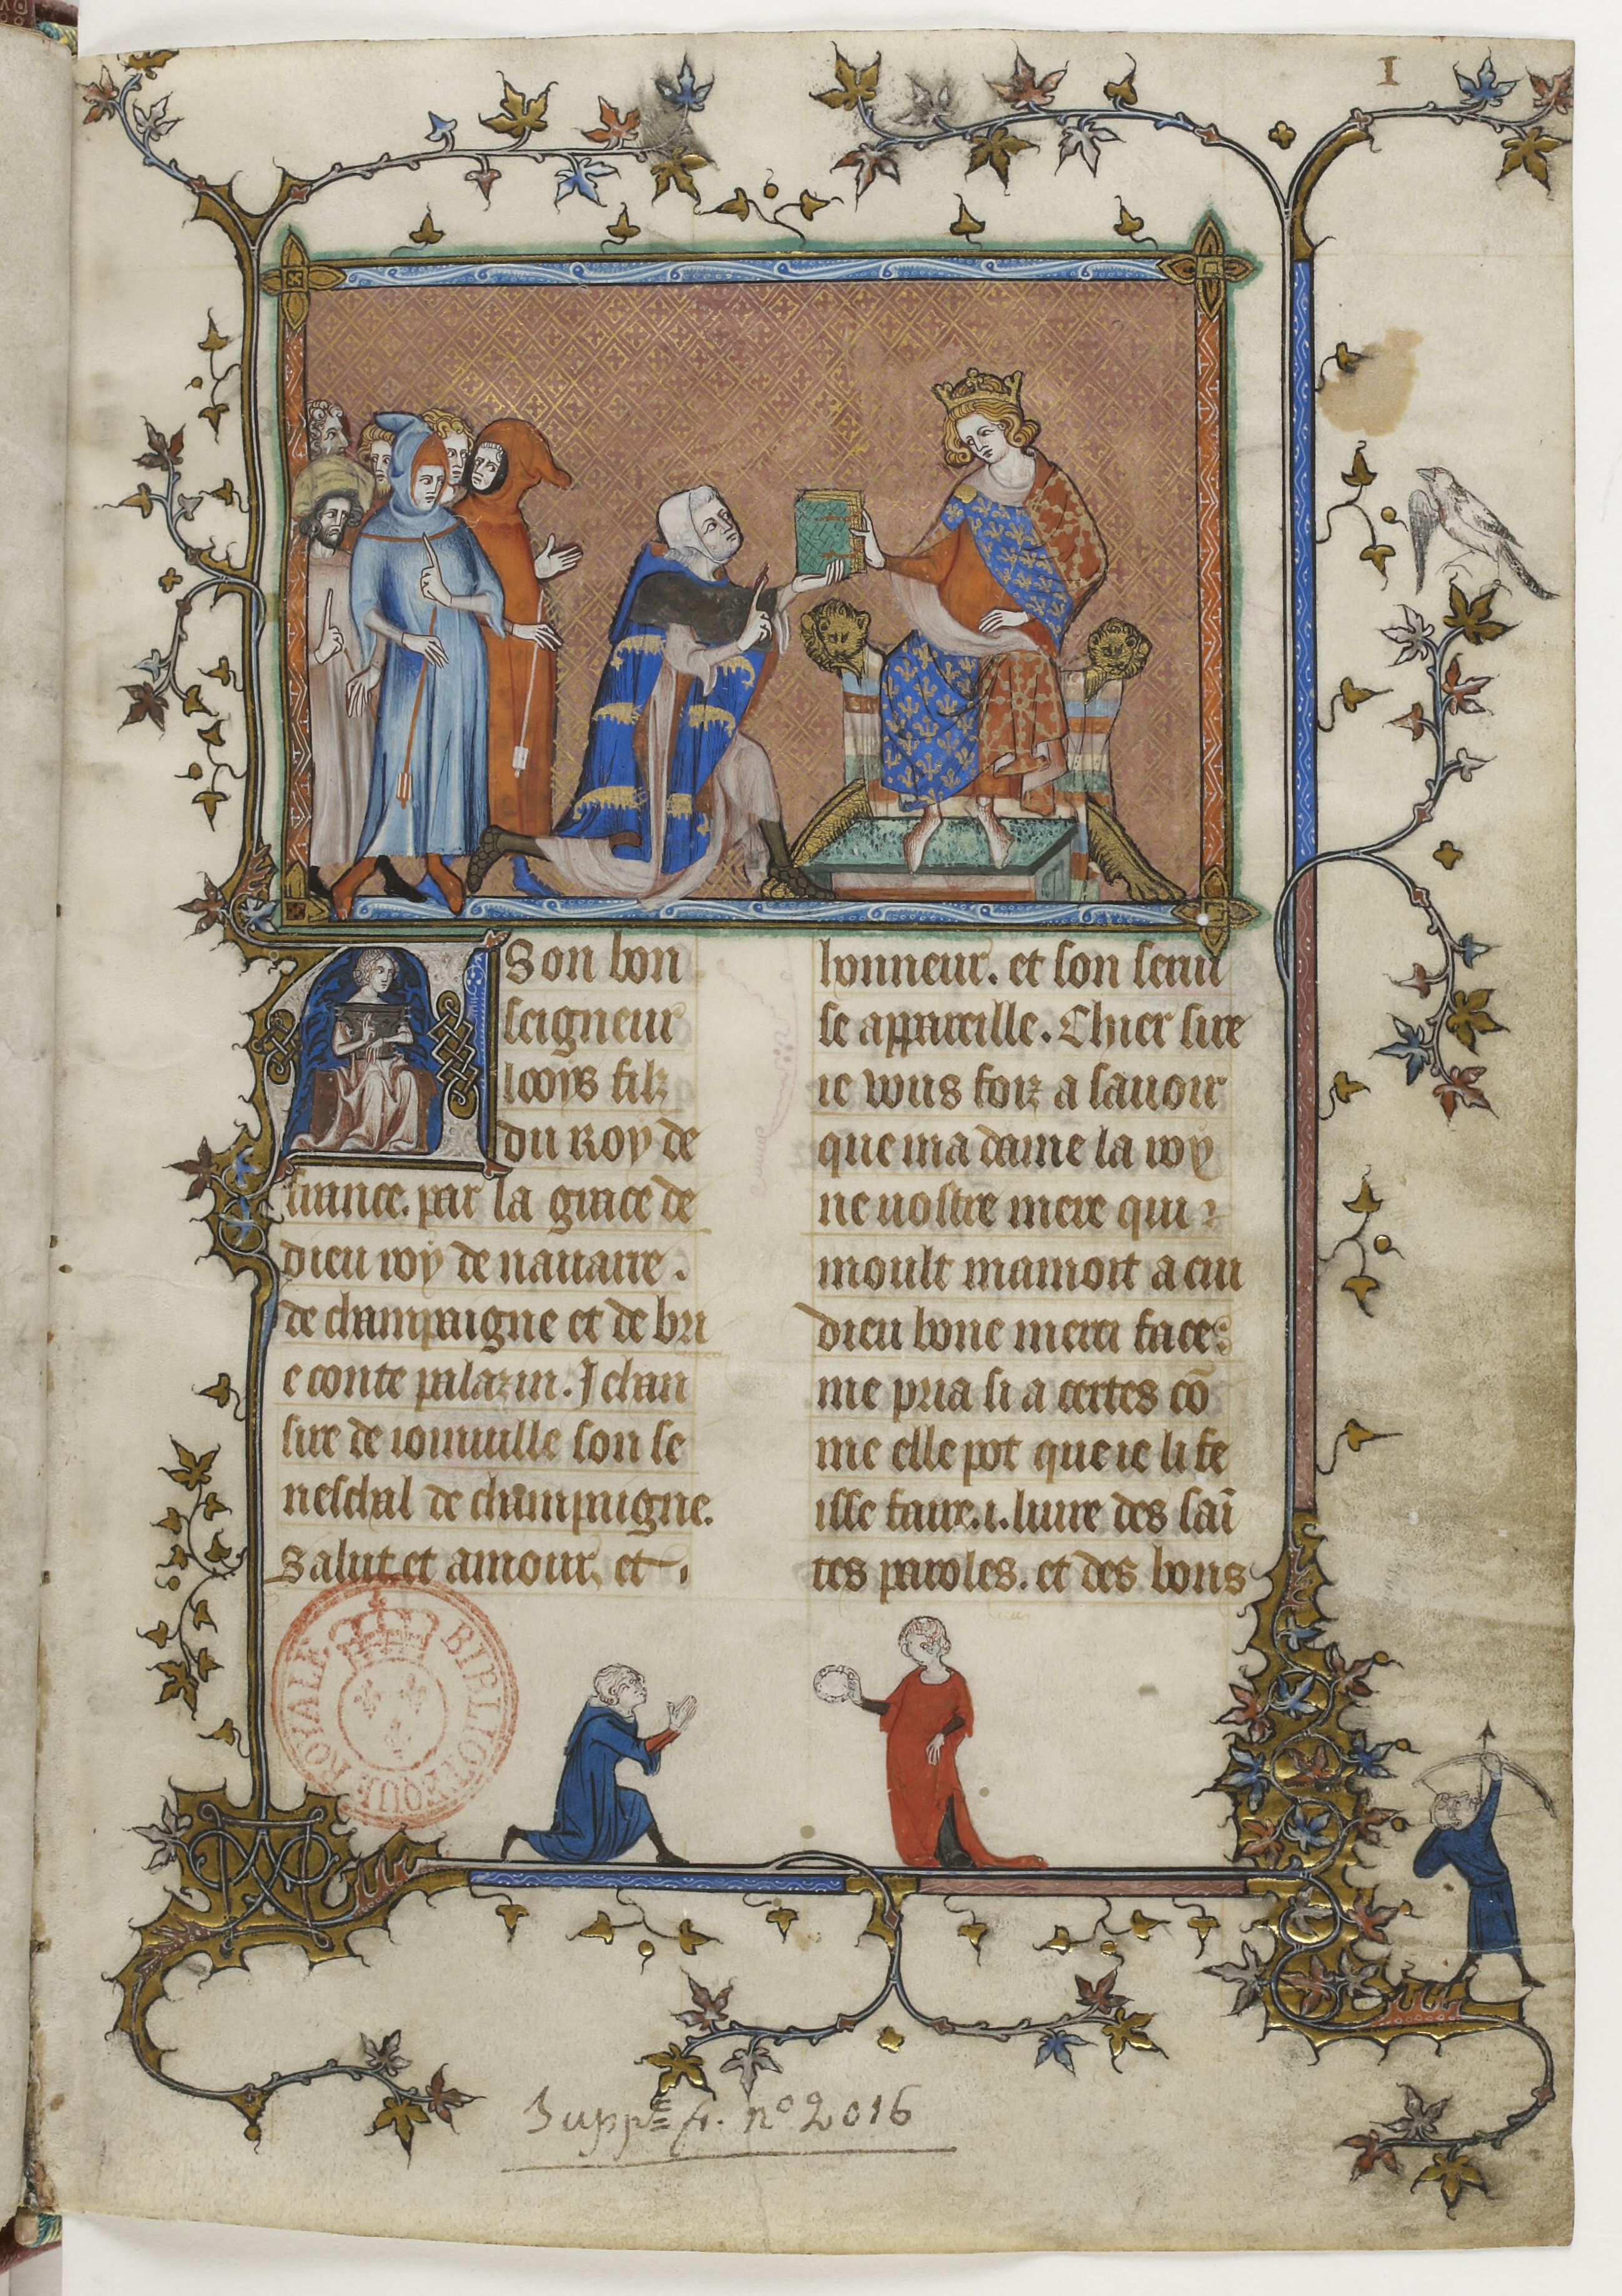 I
A Son bon
seigneur
looys filz
du Roy de
france. par la grace de
dieu roy de nauarre.
de champaigne et de bri
e conte palazin. Jehan
sire de ioinuille son se
neschal de champaigne.
Salut et amour et
honneur. et son serui
se appareille. Chier sire
ie vous foiz a sauoir
que ma dame la roy
ne uostre mere qui
moult mamoit a cui
dieu bone merci face
me pria si a certes cō
me elle pot que ie li fe
isse faire .i. liure des sai
tes paroles. et des bons
BIBLIOTEQUE ROYALE
Supp.t fr. no 2016